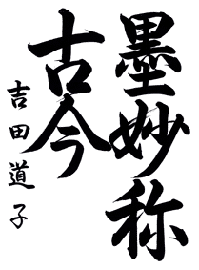 墨妙称
古今
吉田道子